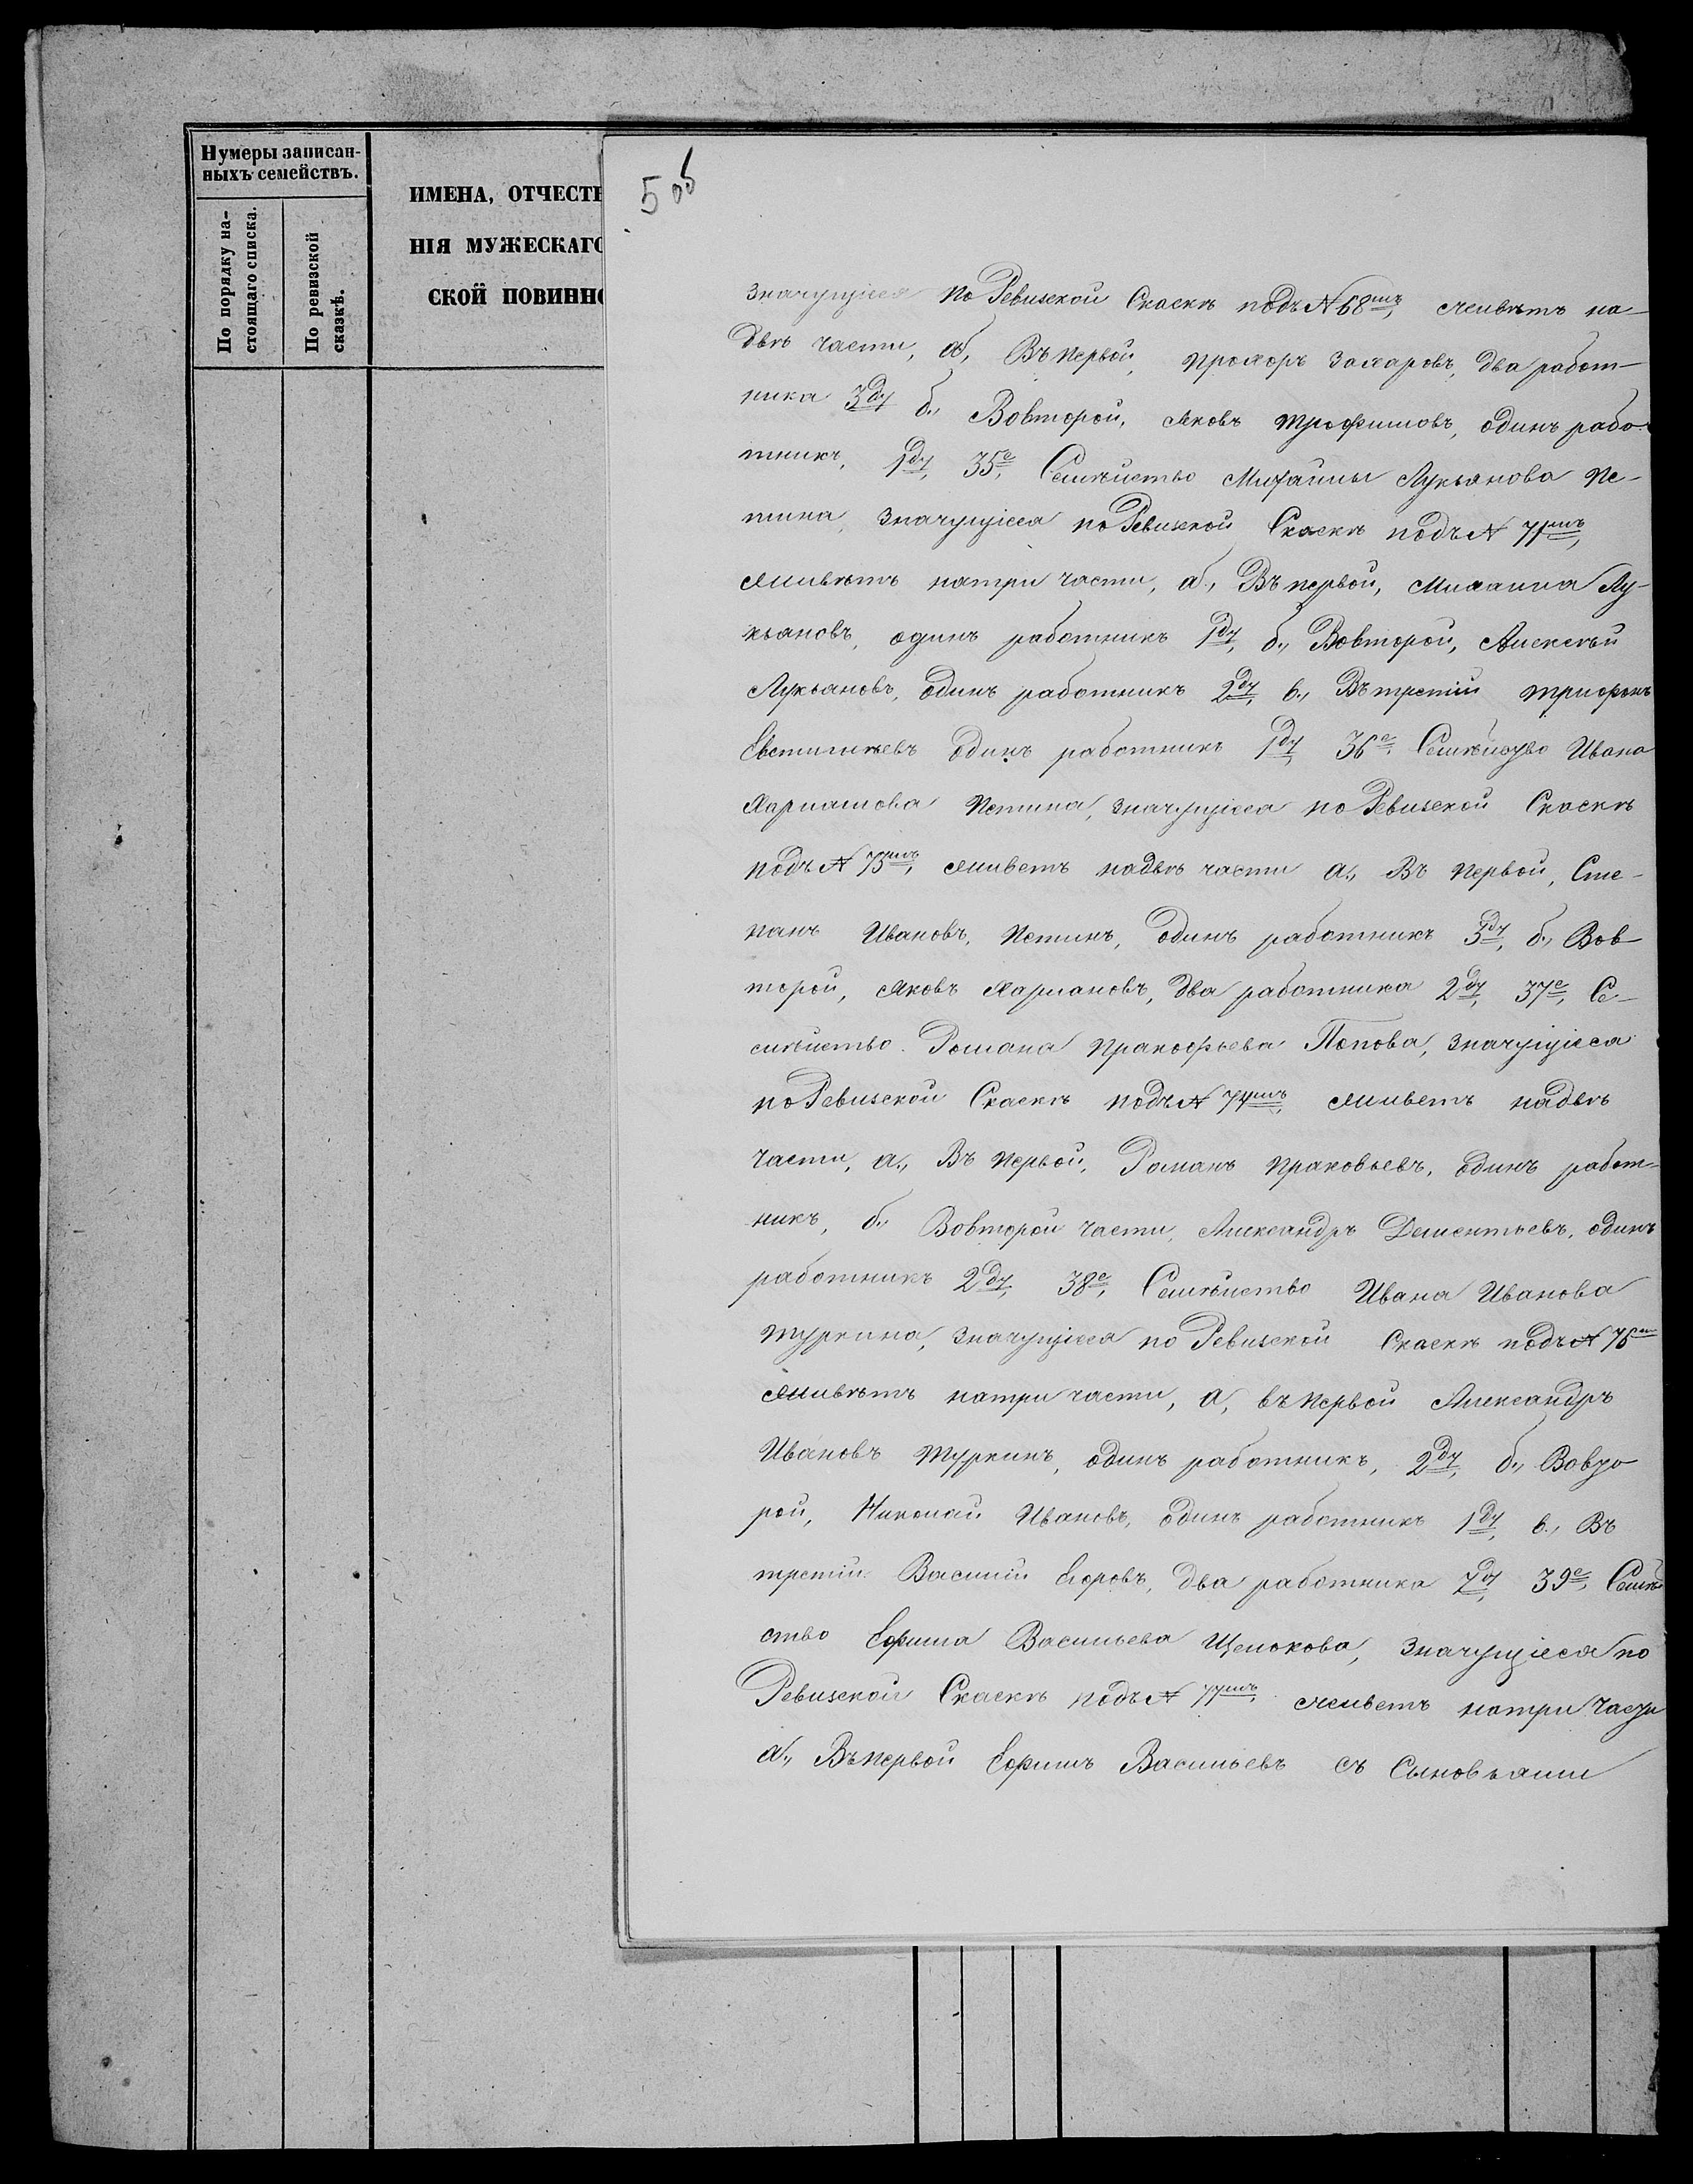 Нумеры записан-
ныхъ семействъ.
По порядку на-
стоящаго списка.
По ревизской
сказкѣ.
ИМЕНА, ОТЧЕСТВ
НІЯ МУЖЕСКАГО
СКОЙ ПОВИННО
5 об
значущіеся по Ревизской Скаскѣ подъ № 68мъ, живѣтъ на-
двѣ части, а, Въ первой, Прохоръ Захаровъ, два работ-
ника 3ду б., Вовторой, Яковъ Трофимовъ, одинъ рабо-
тникъ, 1ду, 35е, Семѣйство Михайлы Лукьянова Пе-
тина, значущіеся по Ревизской Скаскѣ подъ № 71мъ,
живѣтъ натри части, а., Въ первой, Михаила Лу-
кьяновъ, одинъ работникъ 1ду, б., Вовторой, Алексѣй
Лукьяновъ, одинъ работникъ 2ду, в., Въ третій Трифонъ
Евстигнѣевъ одинъ работникъ 1ду, 36е, Семѣйство Ивана
Харламова Петина, значущіеся по Ревизской Скаскѣ
подъ № 73мъ, живетъ надвѣ части а., Въ первой, Сте-
панъ Ивановъ, Петинъ, одинъ работникъ 3ду, б., Вов-
торой, Яковъ Харламовъ, два работника 2ду, 37е, Се-
мѣйство Романа Пракофьева Попова, значущіеся
по Ревизской Скаскѣ подъ № 74мъ, живетъ надвѣ
части, а., Въ первой, Романъ Праковьевъ, одинъ работ-
никъ, б., Вовторой части, Александръ Дементьевъ, одинъ
работникъ 2ду, 38е, Семѣйство Ивана Иванова
Туркина, значущіеся по Ревизской Скаскѣ подъ №
живѣтъ натри части, а, въ первой Александръ
Ивановъ Туркинъ, одинъ работникъ, 2ду, б., Вовто
рой, Николай Ивановъ, одинъ работникъ 1ду, в., Въ
третій Василій Егоровъ, два работника 39е, Семѣй
ство Ефима Васильева Щелокова, значущіеся по
Ревизской Скаскѣ подъ № 77мъ, живетъ натри части
а., Въ первой Ефимъ Васильевъ съ Сыновьями